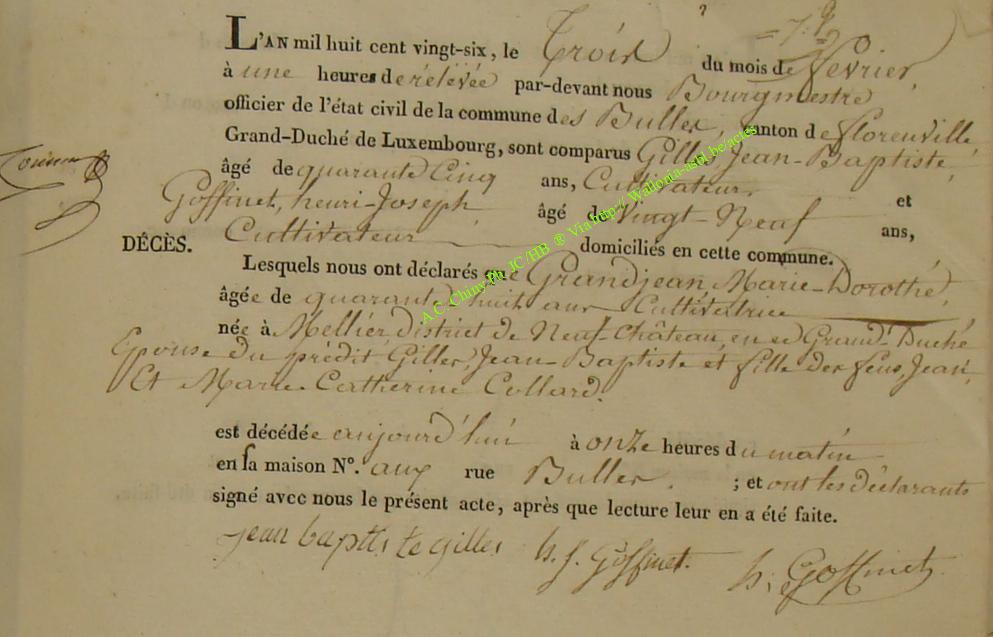 7.
L'AN mil huit cent vingt-six, le Trois du mois de fevrier,
à une heures de rélévée par-devant nous Bourgmestre
officier de l'état civil de la commune des Bulles, canton de florenville,
Grand-Duché de Luxembourg, sont comparus Gilles Jean-Baptiste,
âgé de quarante Cinq ans, Cultivateur. et
Goffinet, henri-Joseph, âgé de Vingt-Neuf ans,
Cultivateur domiciliés en cette commune.
DÉCÈS.
Lesquels nous ont déclarés que Grandjean Marie-Dorothé,
âgée de quarante huit ans Cultivatrice
née à Mellier, district de Neuf-Château, en ce Grand-Duché
Epouse du prédit Gilles, Jean-Baptiste et fille des feus, Jean,
Et Marie-Catherine Collard.
est décédée aujourd'hui à onze heures du matin
en sa maison N°. aux rue Bulles. ; et ont les déclarants
signé avec nous le présent acte, après que lecture leur en a été faite.
jean baptiste gilles h. j. Goffinet. h. Goffinet
A.C. Chiny Ph JC/HB @ Via http:// Wallonia-asbl.be/actes